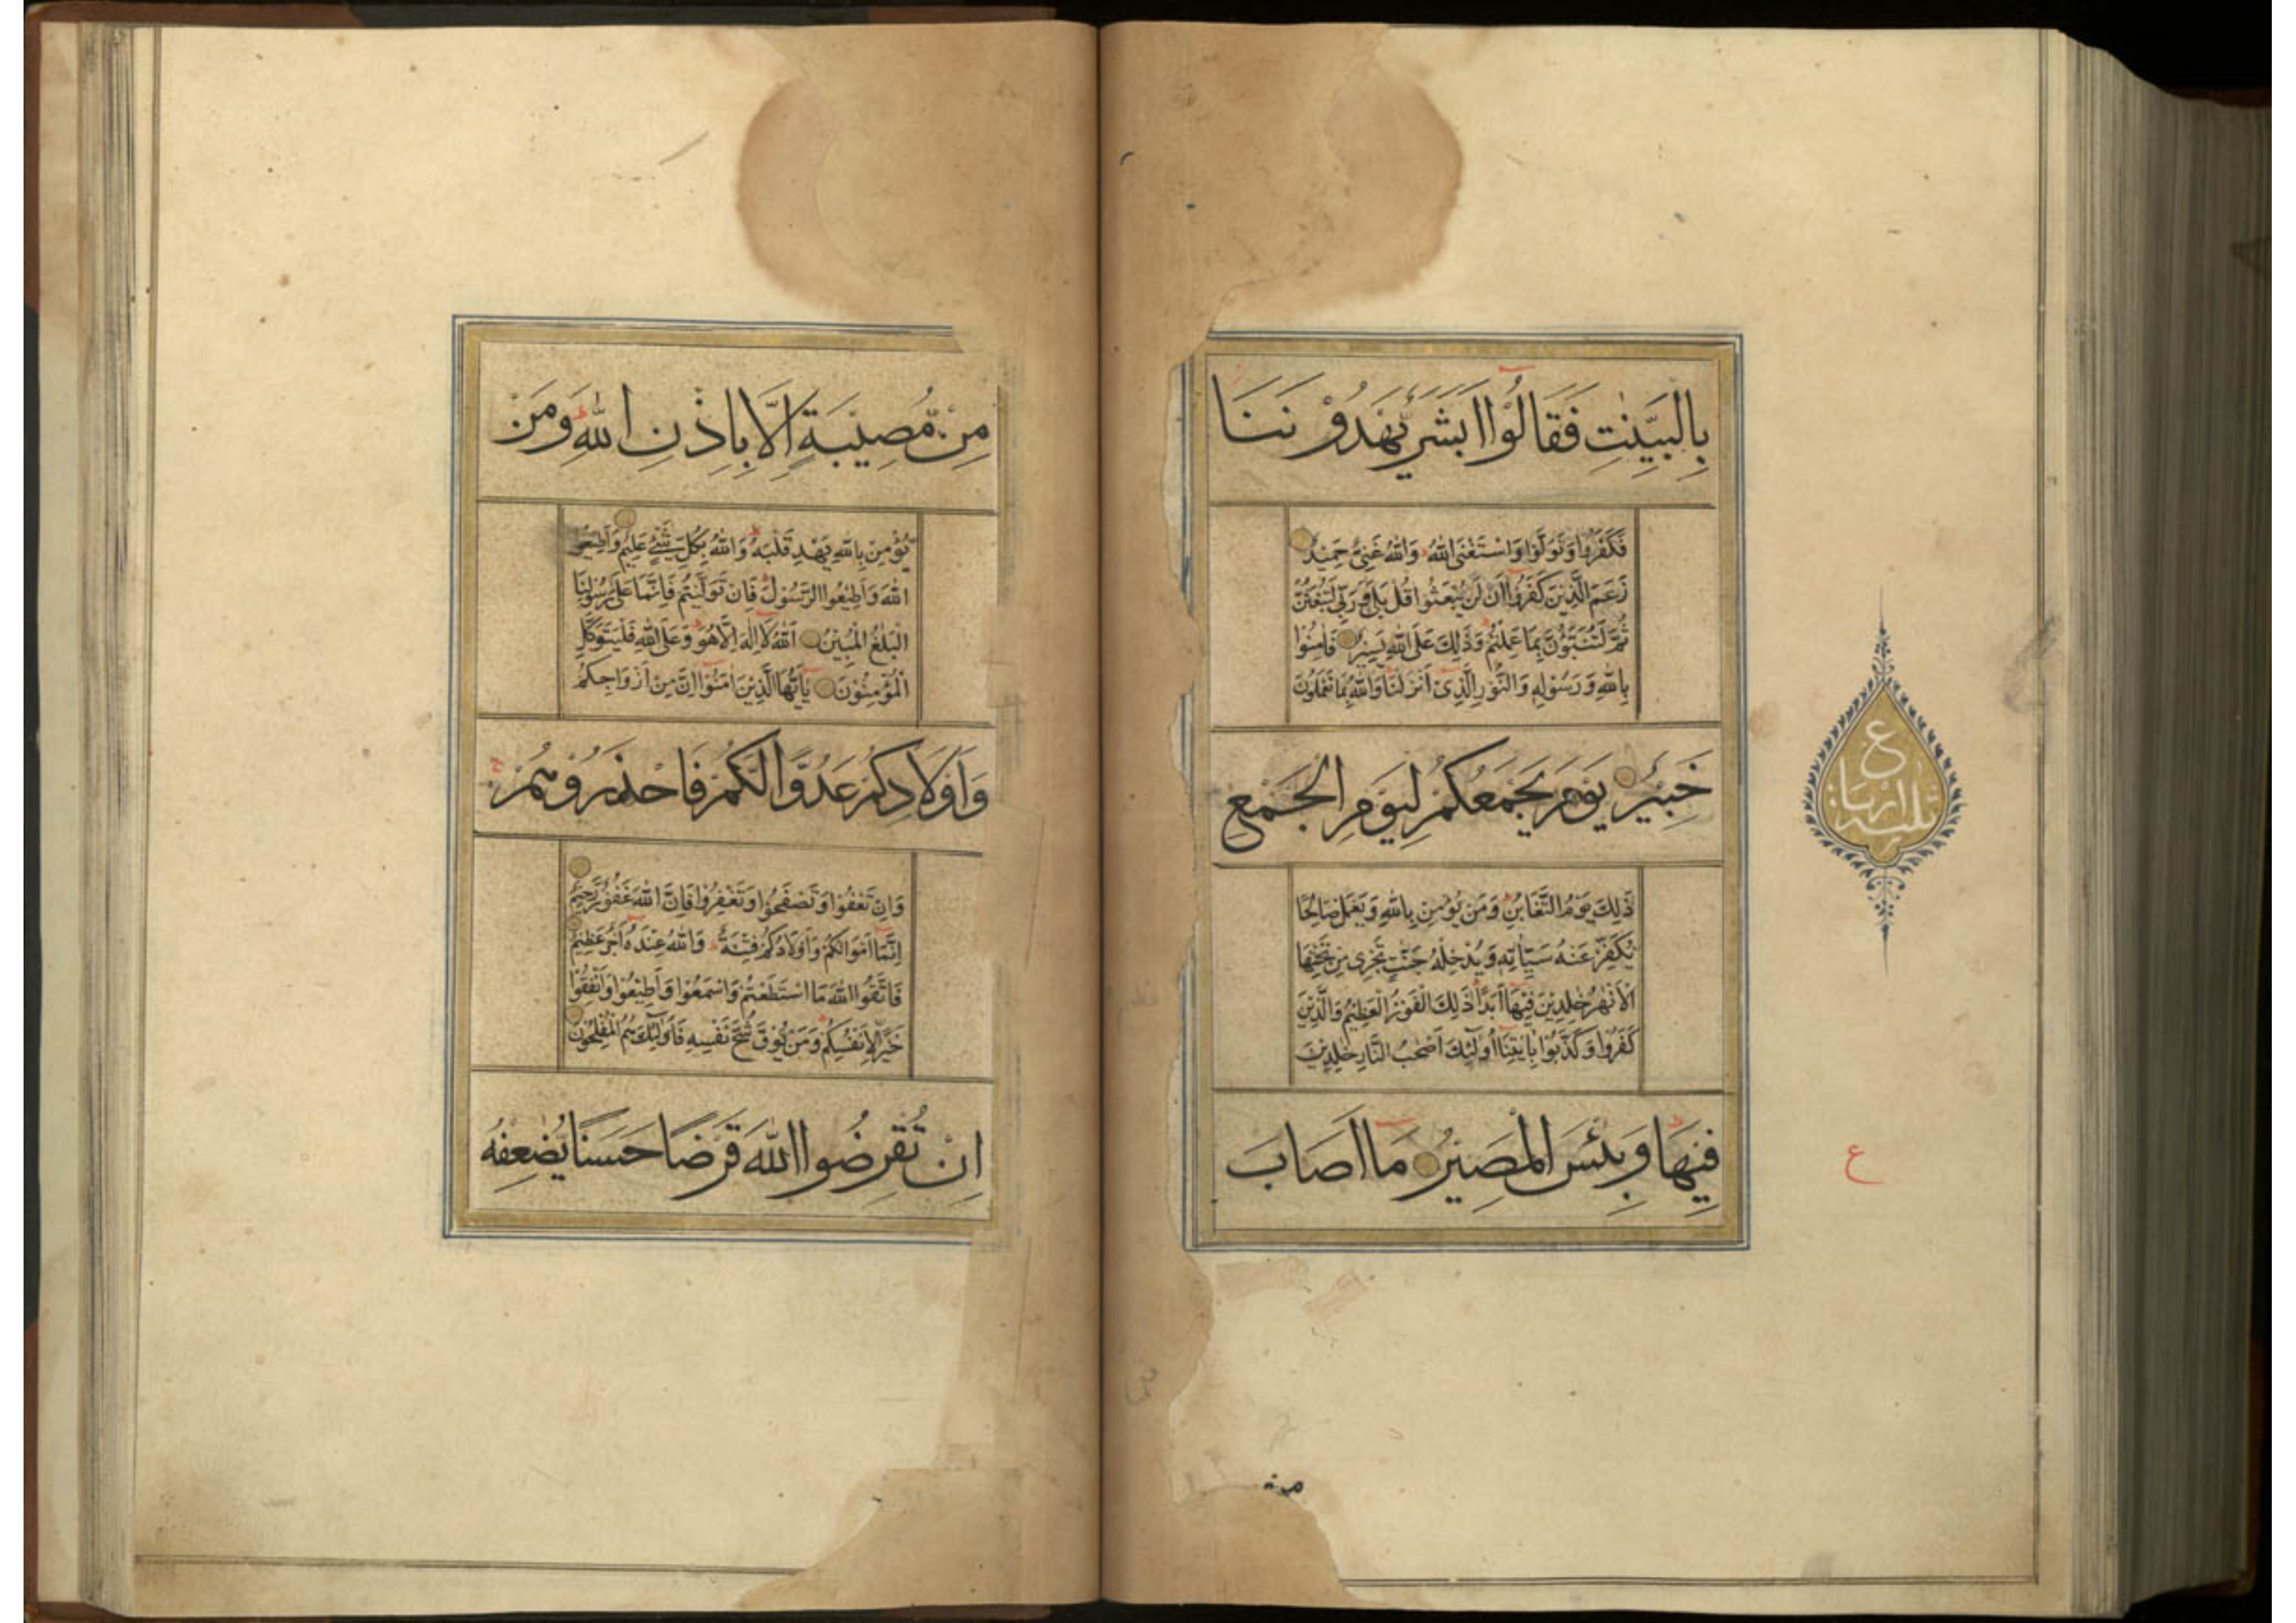 بِالْبَيِّنٰتِ فَقَالُوْا اَبَشَرٌ يَّهْدُوْنَنَا
فَكَفَرُوْا وَتَوَلَّوْا وَاسْتَغْنَى اللّٰهُ وَاللّٰهُ غَنِىٌّ حَمِيْدٌ
زَعَمَ الَّذِيْنَ كَفَرُوْا اَنْ لَنْ يُبْعَثُوْا قُلْ بَلٰى وَرَبِّىْ لَتُبْعَثُنَّ
ثُمَّ لَتُنَبَّؤُنَّ بِمَا عَمِلْتُمْ وَذٰلِكَ عَلَى اللّٰهِ يَسِيْرٌ فَاٰمِنُوْا
بِاللّٰهِ وَرَسُوْلِهٖ وَالنُّوْرِ الَّذِىْ اَنْزَلْنَا وَاللّٰهُ بِمَا تَعْمَلُوْنَ
خَبِيْرٌ يَوْمَ يَجْمَعُكُمْ لِيَوْمِ الْجَمْعِ
ذٰلِكَ يَوْمُ التَّغَابُنِ وَمَنْ يُؤْمِنْ بِاللّٰهِ وَيَعْمَلْ صَالِحًا
يُكَفِّرْ عَنْهُ سَيِّاٰتِهٖ وَيُدْخِلْهُ جَنّٰتٍ تَجْرِىْ مِنْ تَحْتِهَا
الْاَنْهٰرُ خٰلِدِيْنَ فِيْهَا اَبَدًا ذٰلِكَ الْفَوْزُ الْعَظِيْمُ وَالَّذِيْنَ
كَفَرُوْا وَكَذَّبُوْا بِاٰيٰتِنَا اُولٰئِكَ اَصْحٰبُ النَّارِ خٰلِدِيْنَ
فِيْهَا وَبِئْسَ الْمَصِيْرُ مَا اَصَابَ
ع
ع
مِنْ مُّصِيْبَةٍ اِلَّا بِاِذْنِ اللّٰهِ وَمَنْ
يُّؤْمِنْ بِاللّٰهِ يَهْدِ قَلْبَهٗ وَاللّٰهُ بِكُلِّ شَىْءٍ عَلِيْمٌ وَاَطِيْعُوا
اللّٰهَ وَاَطِيْعُوا الرَّسُوْلَ فَاِنْ تَوَلَّيْتُمْ فَاِنَّمَا عَلٰى رَسُوْلِنَا
الْبَلٰغُ الْمُبِيْنُ اَللّٰهُ لَا اِلٰهَ اِلَّا هُوَ وَعَلَى اللّٰهِ فَلْيَتَوَكَّلِ
الْمُؤْمِنُوْنَ يٰاَيُّهَا الَّذِيْنَ اٰمَنُوْا اِنَّ مِنْ اَزْوَاجِكُمْ
وَاَوْلَادِكُمْ عَدُوًّا لَّكُمْ فَاحْذَرُوْهُمْ
وَاِنْ تَعْفُوْا وَتَصْفَحُوْا وَتَغْفِرُوْا فَاِنَّ اللّٰهَ غَفُوْرٌ رَّحِيْمٌ
اِنَّمَا اَمْوَالُكُمْ وَاَوْلَادُكُمْ فِتْنَةٌ وَاللّٰهُ عِنْدَهٗ اَجْرٌ عَظِيْمٌ
فَاتَّقُوا اللّٰهَ مَا اسْتَطَعْتُمْ وَاسْمَعُوْا وَاَطِيْعُوْا وَاَنْفِقُوْا
خَيْرًا لِّاَنْفُسِكُمْ وَمَنْ يُّوْقَ شُحَّ نَفْسِهٖ فَاُولٰئِكَ هُمُ الْمُفْلِحُوْنَ
اِنْ تُقْرِضُوا اللّٰهَ قَرْضًا حَسَنًا يُّضٰعِفْهُ